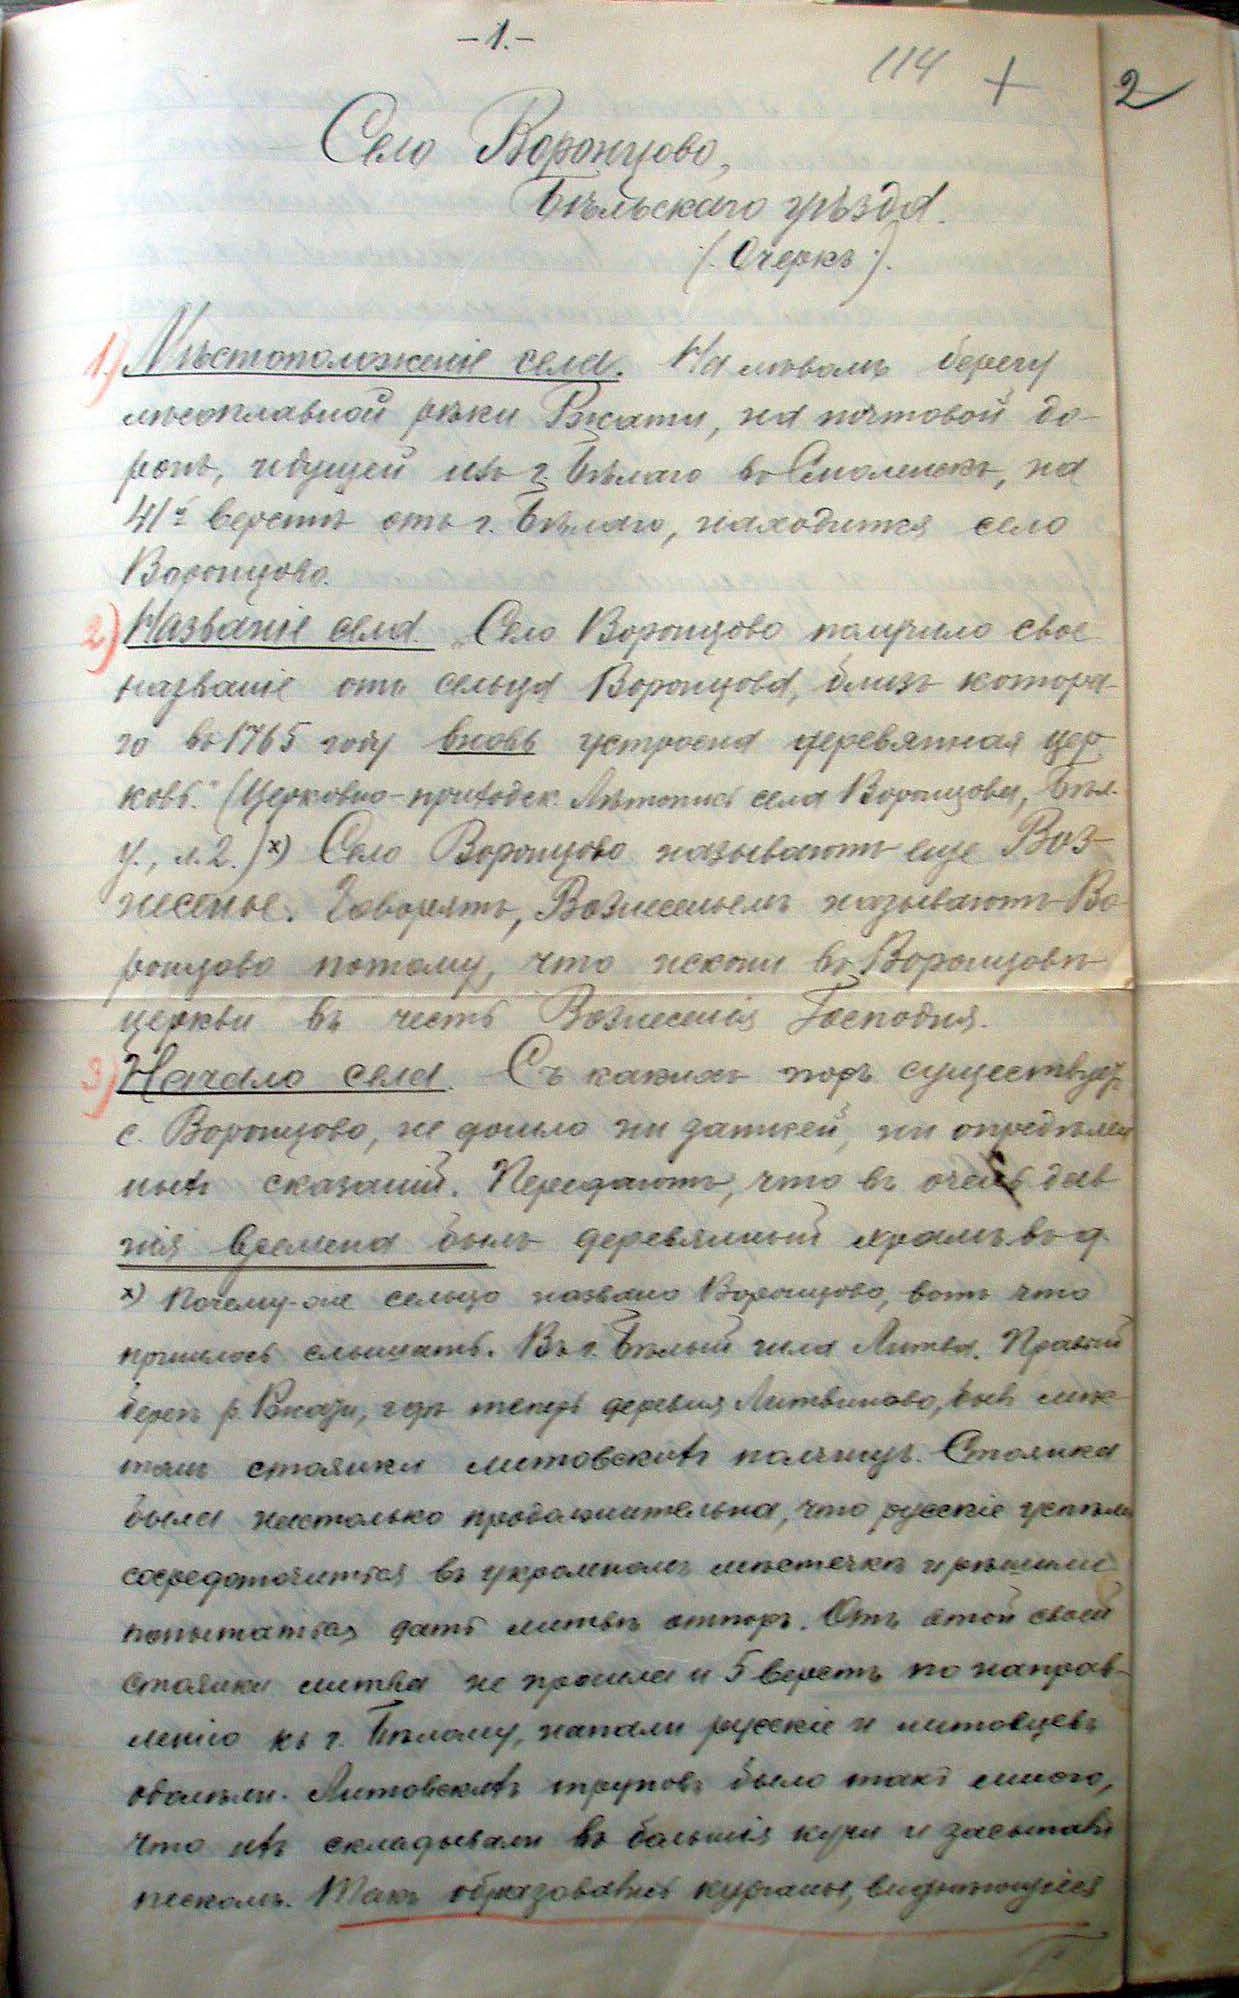 -1.-
114 +
2
Село Воронцово,
Бѣльскаго уѣзда.
(. Очеркъ .).
1.) Мѣстоположеніе села. На лѣвомъ берегу
лѣсоплавной рѣки Вжати, на почтовой до-
рогѣ, идущей изъ г. Бѣлаго въ Смоленскъ, на
41й верстѣ отъ г. Бѣлаго, находится село
Воронцово.
2) Названіе села. „Село Воронцово получило свое
названіе отъ сельца Воронцова, близъ котора-
го въ 1765 году вновь устроена деревянная цер
ковь." (Церковно-приходск. Лѣтопись села Воронцова, Бѣл.
у., л. 2.) х) Село Воронцово называютъ еще Воз-
несенье. Говорятъ, Вознесеньемъ называютъ Во-
ронцово потому, что искони въ Воронцовѣ
церкви въ честь Вознесенія Господня.
3) Начало села. Съ какихъ поръ существует
с. Воронцово, не дошло ни записей, ни опредѣлен
ныхъ сказаній. Передаютъ, что въ очень дав
нія времена былъ деревянный храмъ въ д.
х) Почему-же сельцо названо Воронцово, вотъ что
пришлось слышать. Въ г. Бѣлый шла Литва. Правый
берегъ р. Вжати, гдѣ теперь деревня Литвиново, былъ мѣс-
томъ стоянки литовскихъ полчищъ. Стоянка
была настолько продолжительна, что русскіе успѣли
сосредоточиться въ укромномъ мѣстечкѣ и рѣшили
попытаться дать литвѣ отпоръ. Отъ этой своей
стоянки литва не прошла и 5 верстъ по направ-
ленію къ г. Бѣлому, напали русскіе и литовцевъ
одолѣли. Литовскихъ труповъ было такъ много,
что ихъ складывали въ большія кучи и засыпали
пескомъ. Такъ образовались курганы, виднѣющіеся